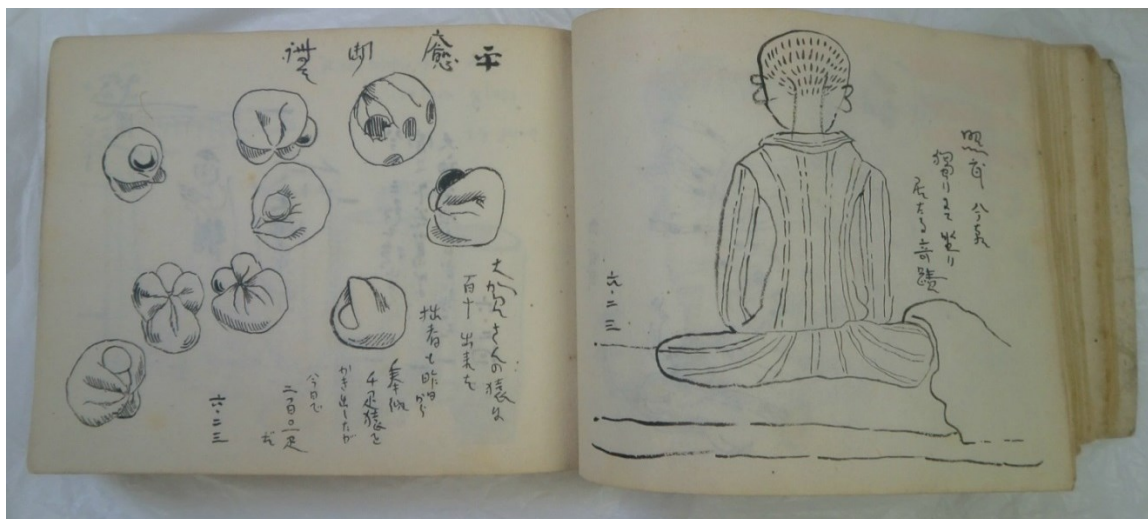 獨りにて坐り
居たる奇蹟
六・二三
平癒御禮
さんの猿は
百十出来た
拙者も昨日から
真似
千疋猿を
かき出したが
今日で
二百〇一疋だ
六・二三